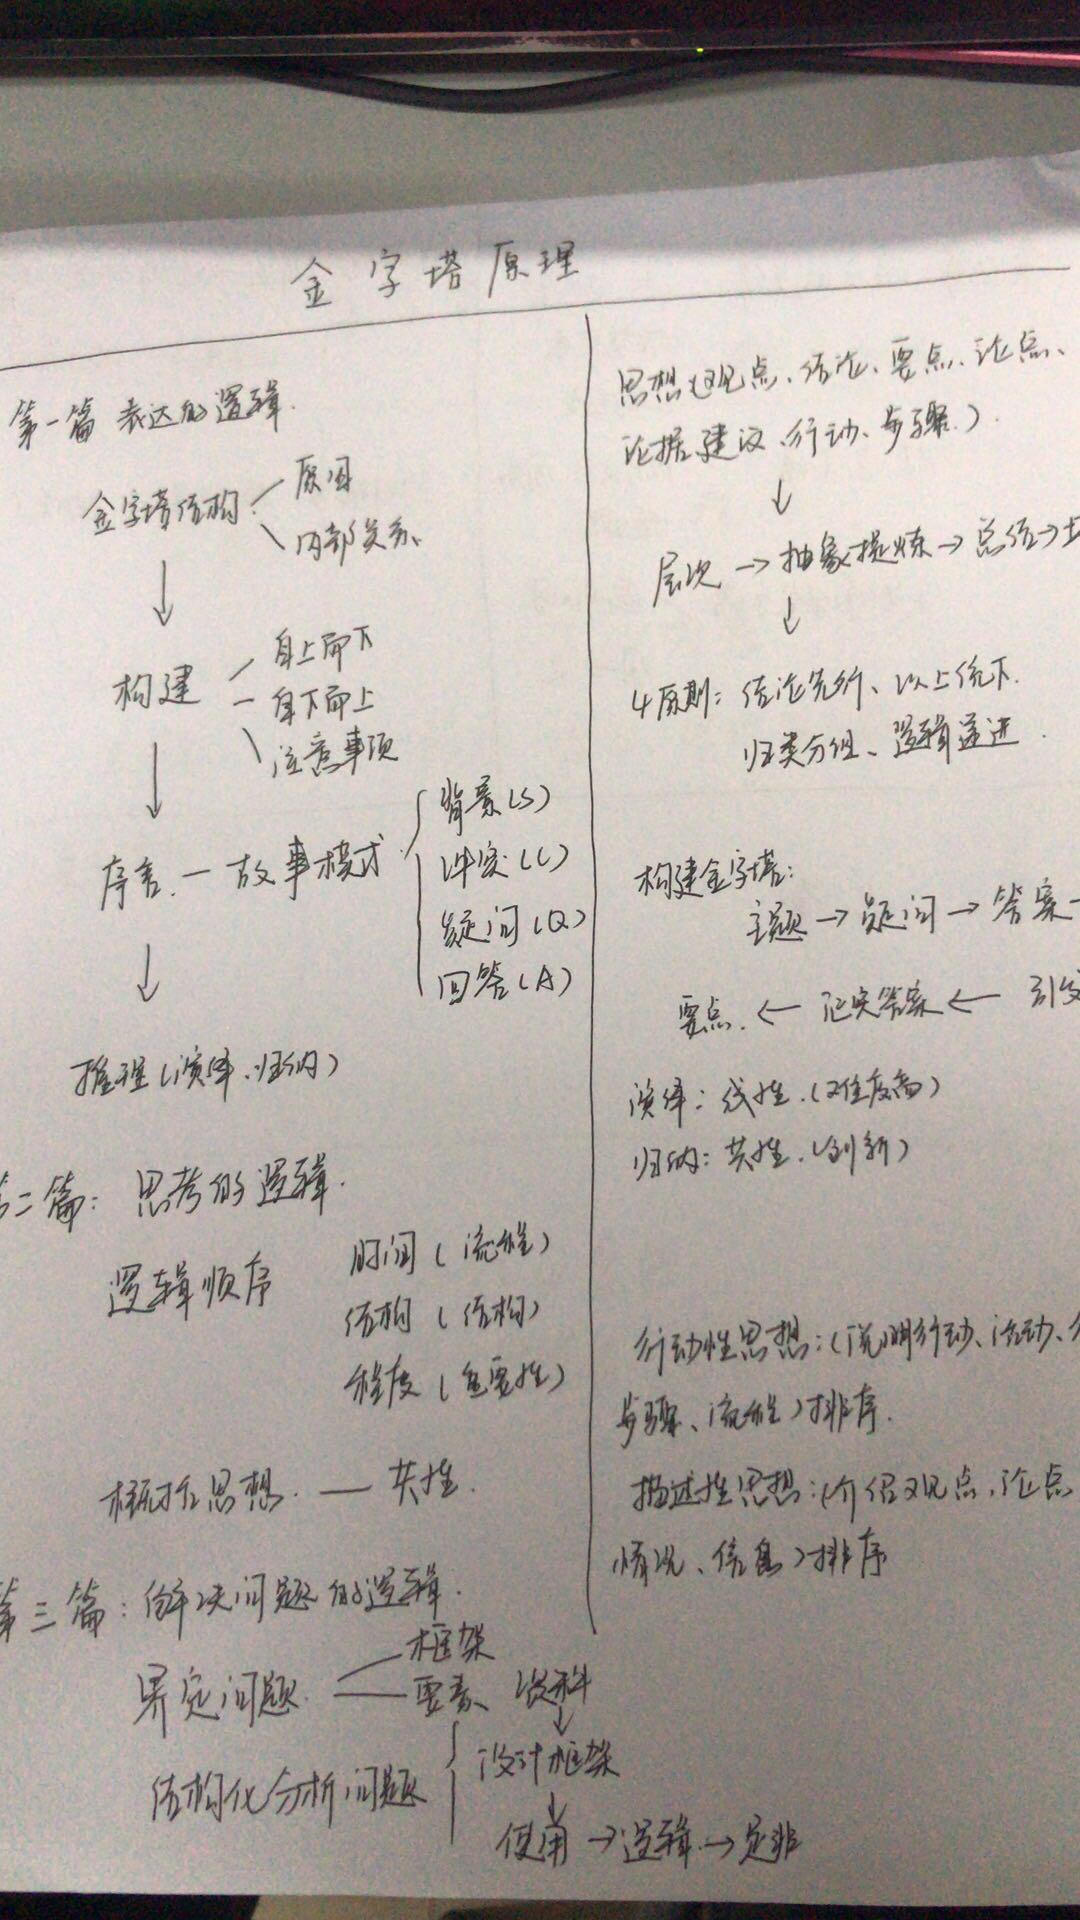 金字塔原理
第一篇 表达的逻辑.
金字塔结构
原因
内部关系
↓
构建
自上而下
自下而上
注意事项
↓
序言. — 故事模式
背景(S)
冲突(C)
疑问(Q)
回答(A)
↓
推理(演绎、归纳)
二篇: 思考的逻辑.
逻辑顺序
时间(流程)
结构(结构)
程度(重要性)
概括思想. — 共性.
第三篇: 解决问题的逻辑.
界定问题.
框架
要素
结构化分析问题
资料
↓
设计框架
↓
使用 → 逻辑 → 是非
思想(观点、结论、要点、论点、
论据、建议、行动、步骤.)
↓
层次 → 抽象提炼 → 总结 →
↓
4原则: 结论先行、以上统下.
归类分组、逻辑递进.
构建金字塔:
主题 → 疑问 → 答案
要点. ← 证实答案 ← 引发
演绎: 线性.
归纳: 共性.(创新)
行动性思想:(说明行动、活动、
步骤、流程)排序.
描述性思想:(介绍观点、论点
情况、信息)排序